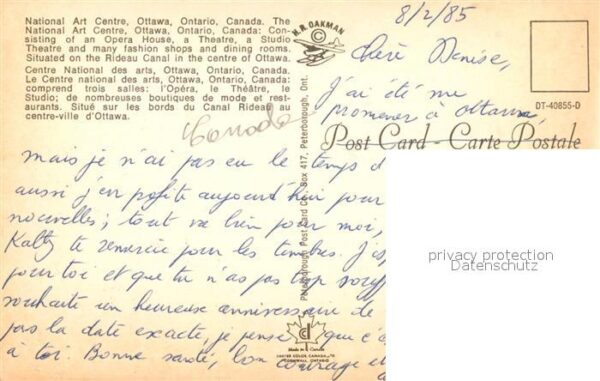 National Art Centre, Ottawa, Ontario, Canada. The
National Art Centre, Ottawa, Ontario, Canada: Con-
sisting of an Opera House, a Theatre, a Studio
Theatre and many fashion shops and dining rooms.
Situated on the Rideau Canal in the centre of Ottawa.
Centre National des arts, Ottawa, Ontario, Canada.
Le Centre national des arts, Ottawa, Ontario, Canada:
comprend trois salles: l'Opéra, le Théâtre, le
Studio; de nombreuses boutiques de mode et rest-
aurants. Situé sur les bords du Canal Rideau au
centre-ville d'Ottawa.
Canada
H.R. OAKMAN
©
Peterborough Post Card Co., Box 417, Peterborough, Ont.
8/2/85
DT-40855-D
Post Card - Carte Postale
Chère Denise,
J'ai été me
promener à Ottawa,
mais je n'ai pas eu le temps d
aussi j'en profite aujourd'hui pour
nouvelles; tout va bien pour moi,
Katty te remercie pour les timbres. J'es
pour toi et que tu n'as pas trop
souhaite un heureuse anniversaire de
pas la date exacte, je pense que c'
à toi. Bonne santé, bon courage et
Made in Canada
UNITED COLOR, CANADA, LTD
CORNWALL, ONTARIO
privacy protection
Datenschutz